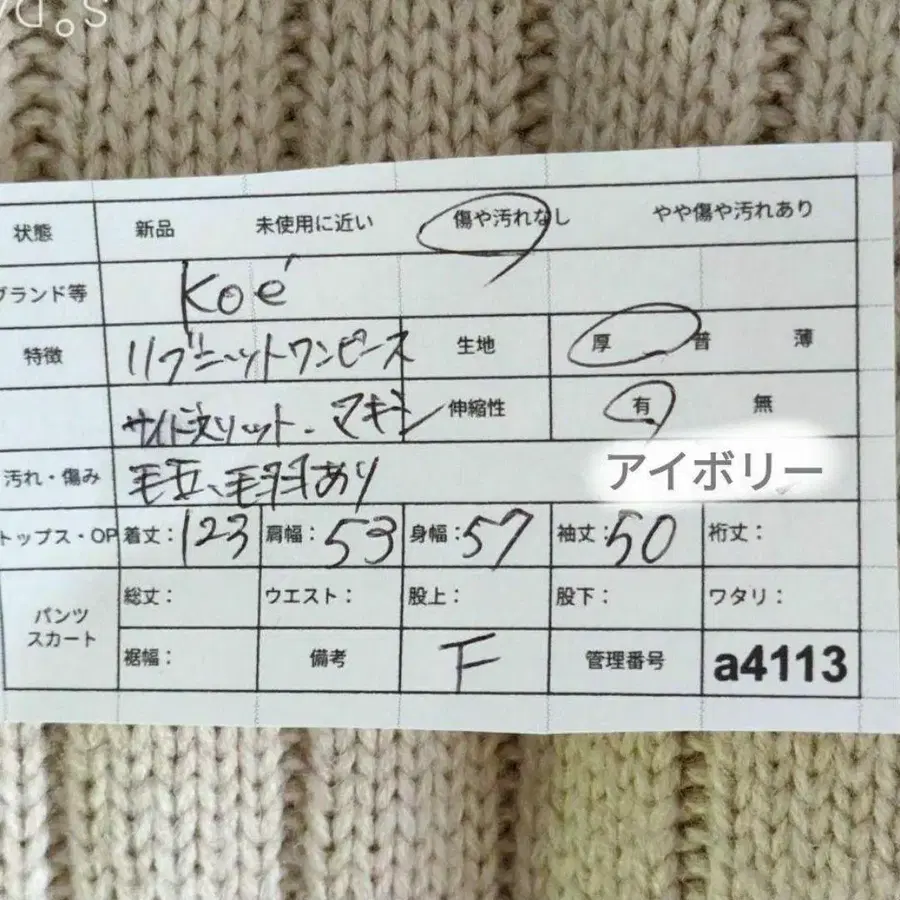 状態 新品 未使用に近い 傷や汚れなし やや傷や汚れあり
ブランド等 Koé
特徴 リブニットワンピース 生地 厚 普 薄
サイドスリット、マキシ 伸縮性 有 無
汚れ・傷み 毛玉、毛羽あり アイボリー
トップス・OP 着丈：123 肩幅：53 身幅：57 袖丈：50 裄丈：
パンツ スカート 総丈： ウエスト： 股上： 股下： ワタリ：
裾幅： 備考 F 管理番号 a4113